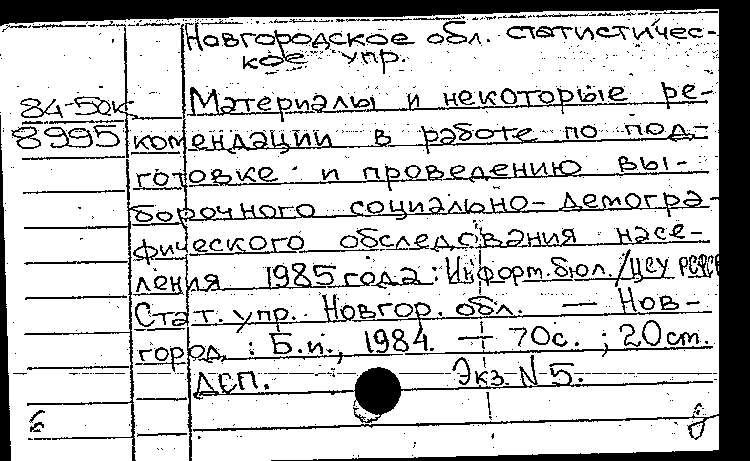 Новгородское обл. статистичес-
кое упр.
84-50к
8995
Материалы и некоторые ре-
комендации в работе по под-
готовке и проведению вы-
борочного социально-демогра-
фического обследования насе-
ления 1985 года: Информ. бюл./ЦСУ РСФСР
Стат. упр. Новгор. обл. — Нов-
город, : Б.и., 1984. — 70с. ; 20ст.
ДСП. Экз. N 5.